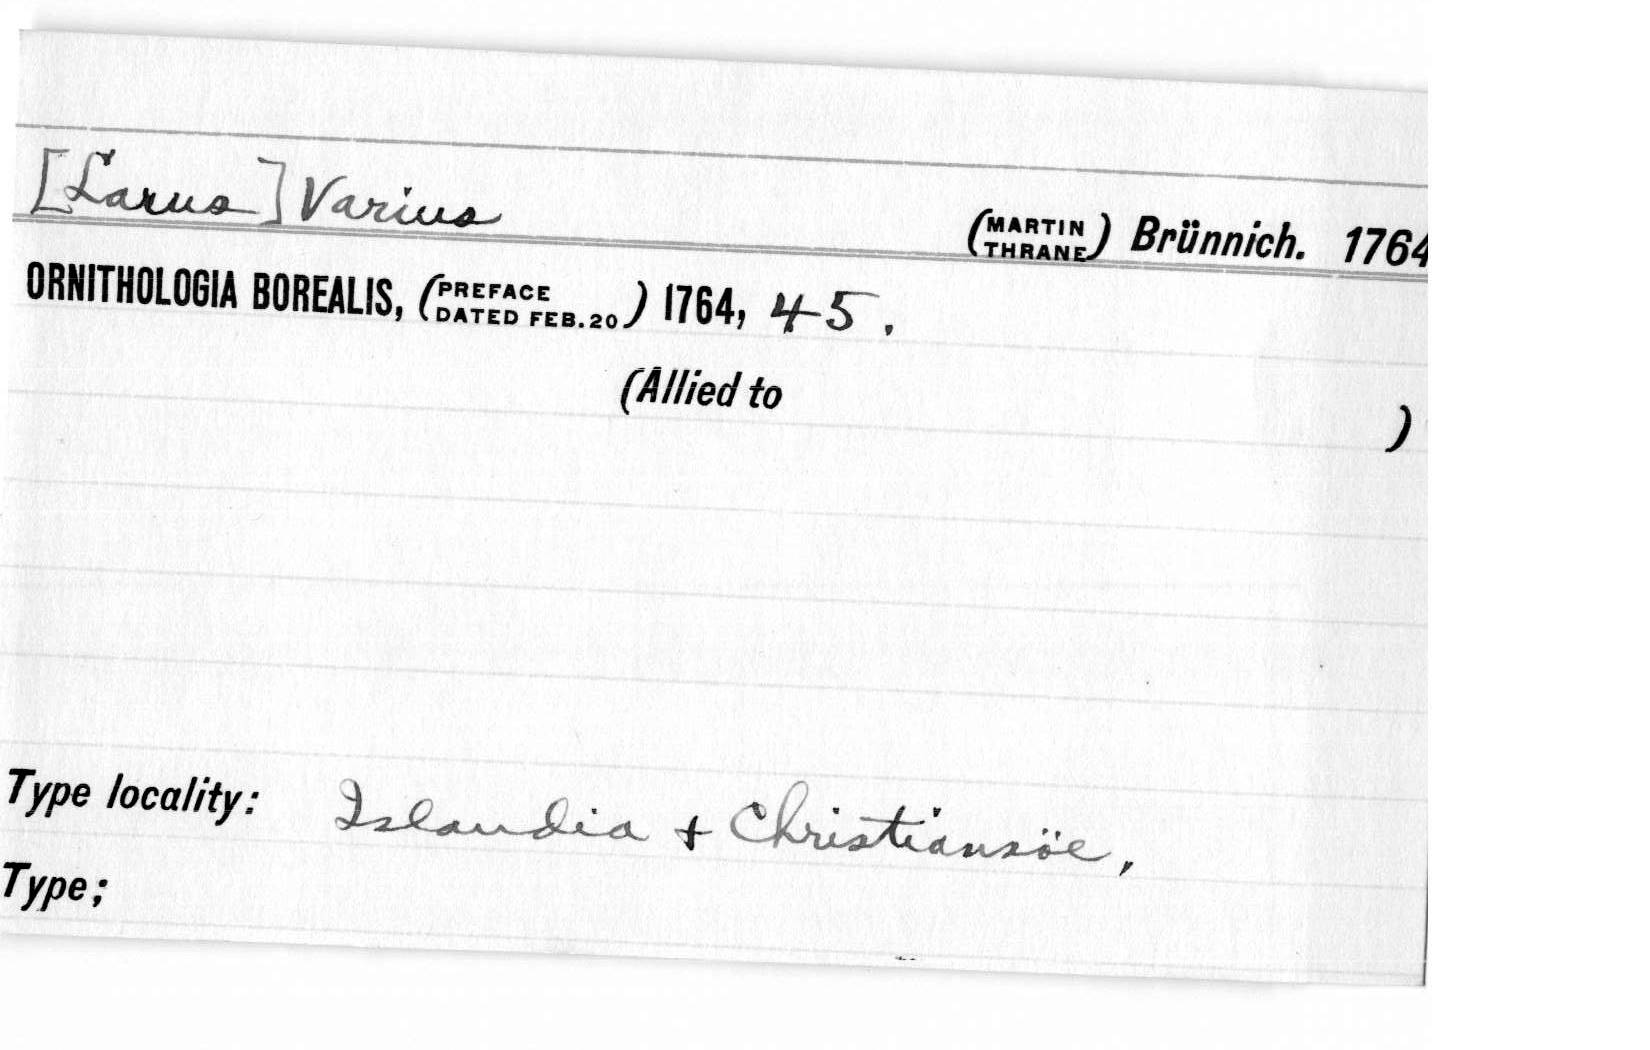 [Larus] Varius
(MARTIN THRANE) Brünnich. 1764
ORNITHOLOGIA BOREALIS, (PREFACE DATED FEB.20) 1764, 45.
(Allied to )
Type locality: Islandia + Christiansöe,
Type;